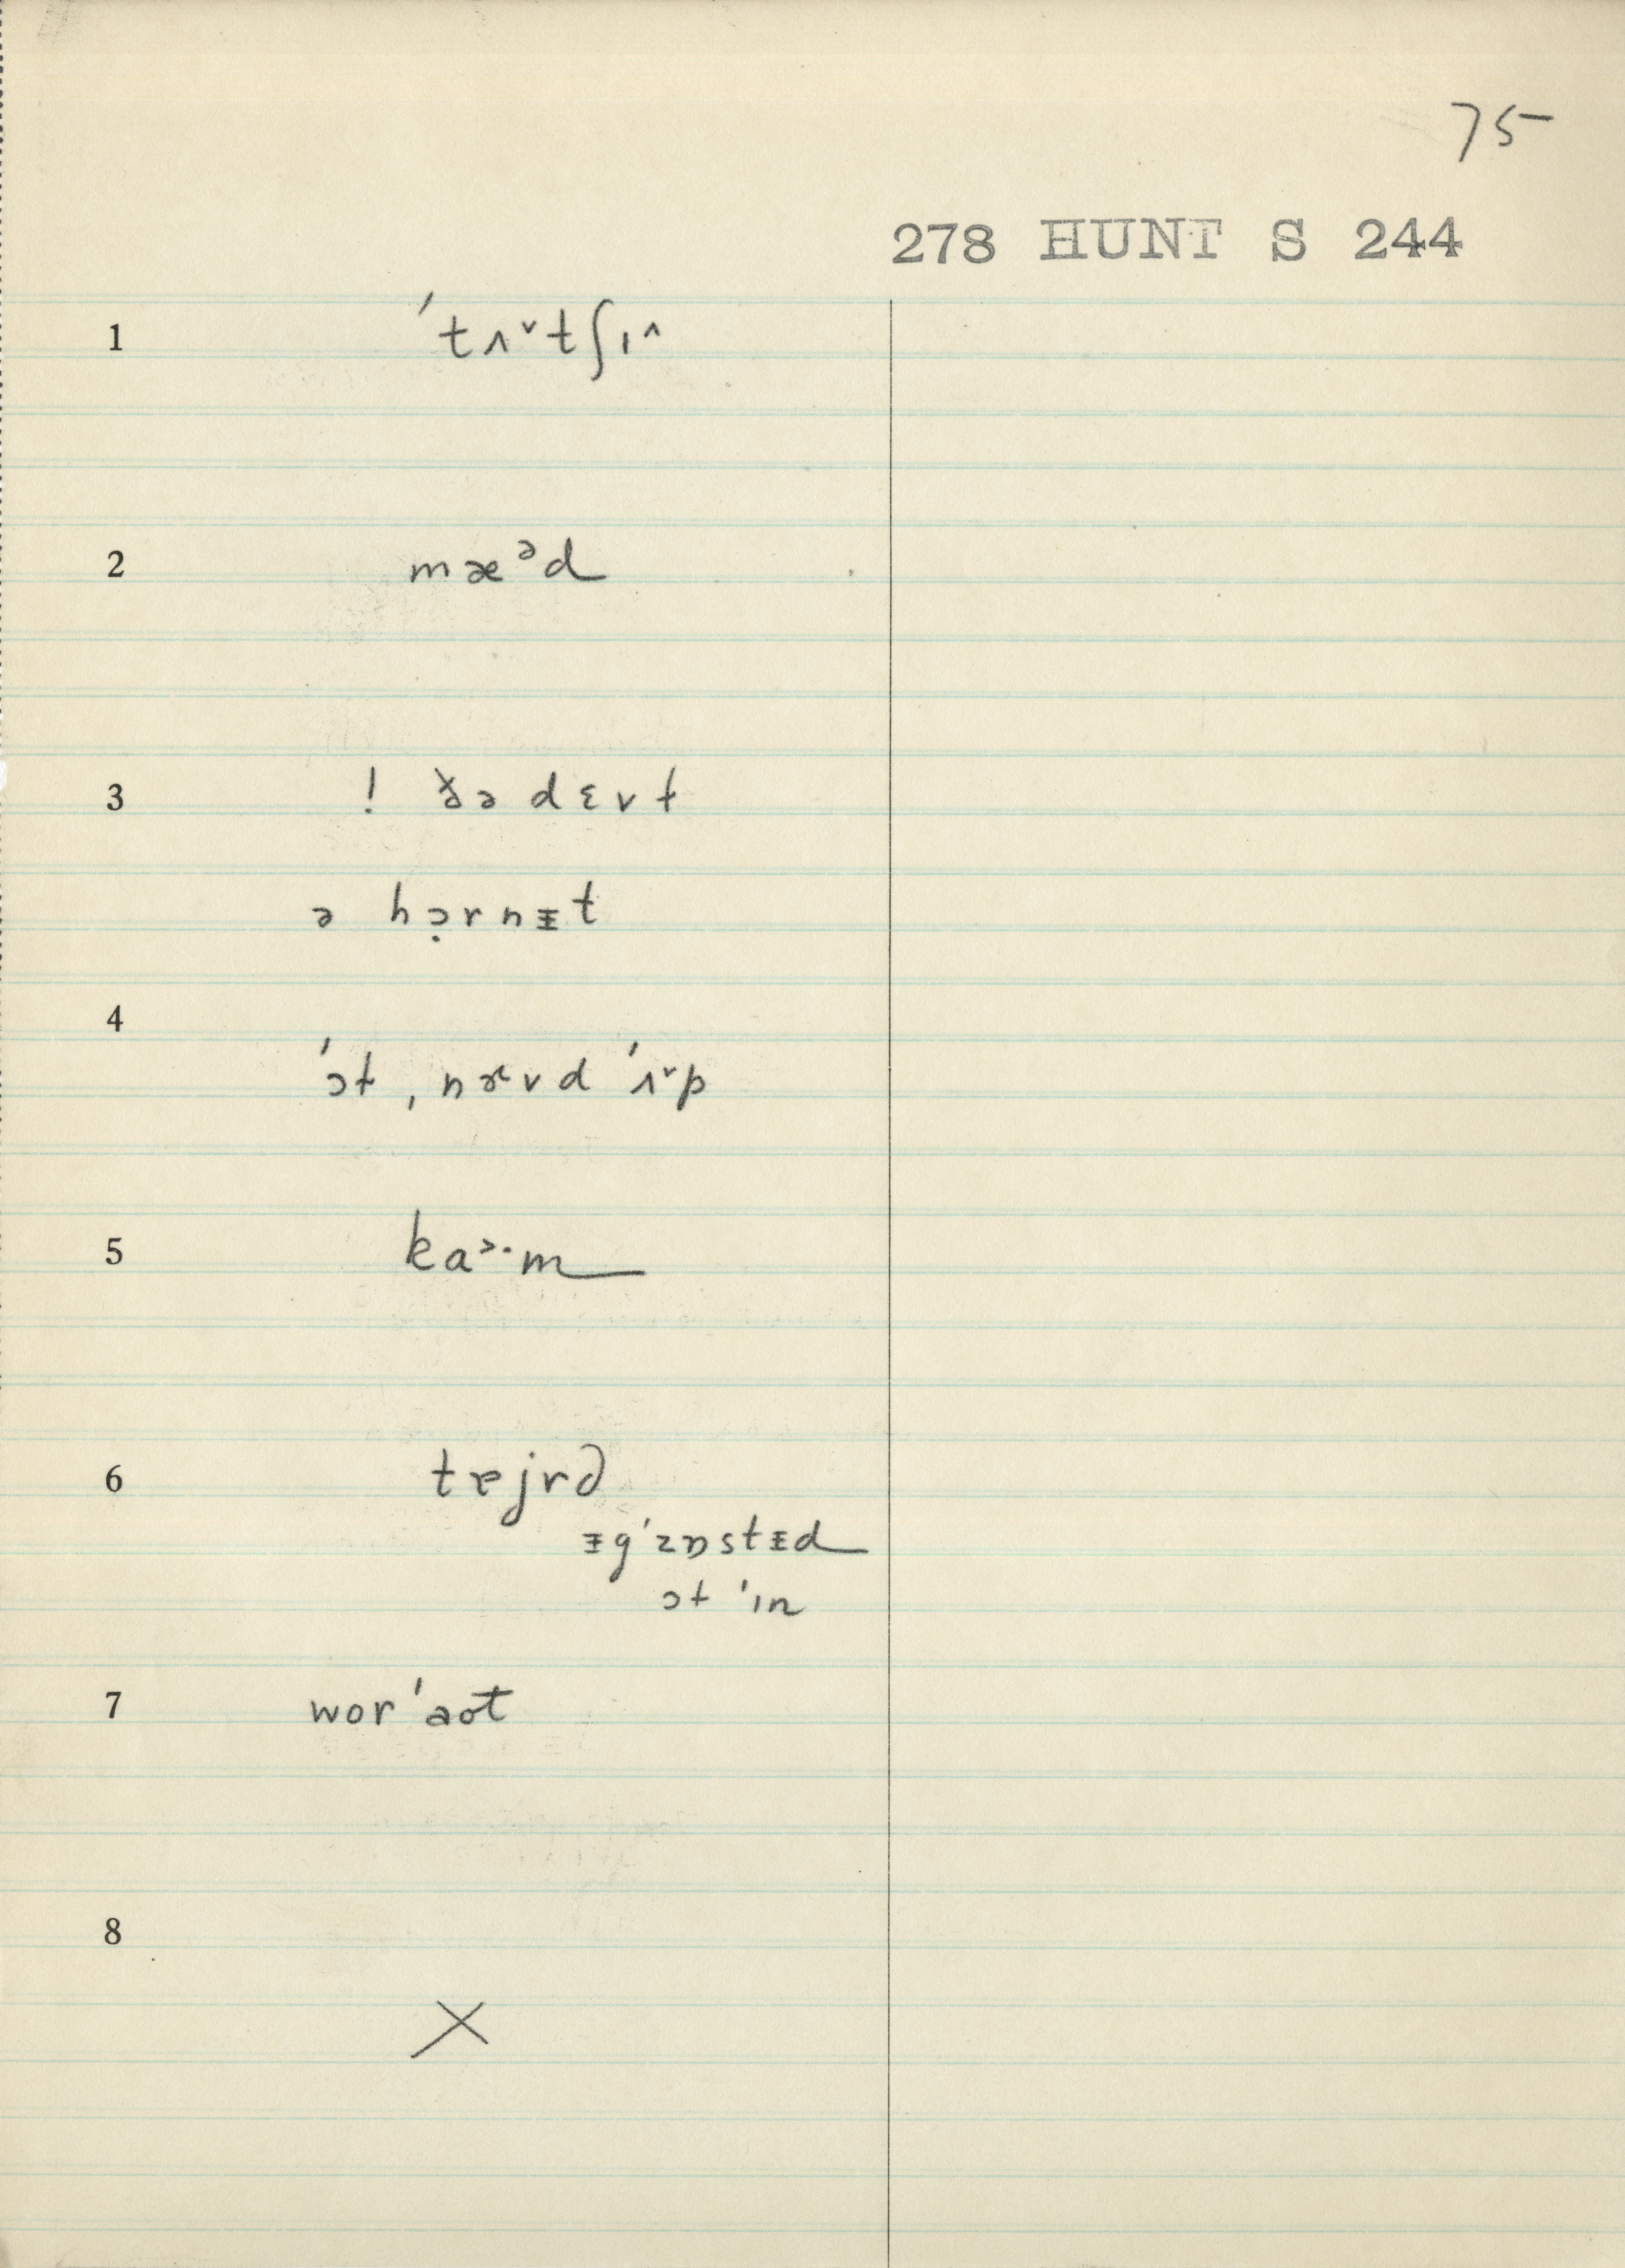 75
278 HUNT S 244
1 ˈtʌ˅tʃɪ^
2 mæᵊd
3 ! ðə dɛvt
ə hɔ̣rnɪ̵t
4
ˈɔt, nævd ˈʌ˅p
5 ka˃·m
6 tɐjrd
ɪ̵gˈzɒstɪ̵d
ɔt ˈɪn
7 worˈaot
8
X